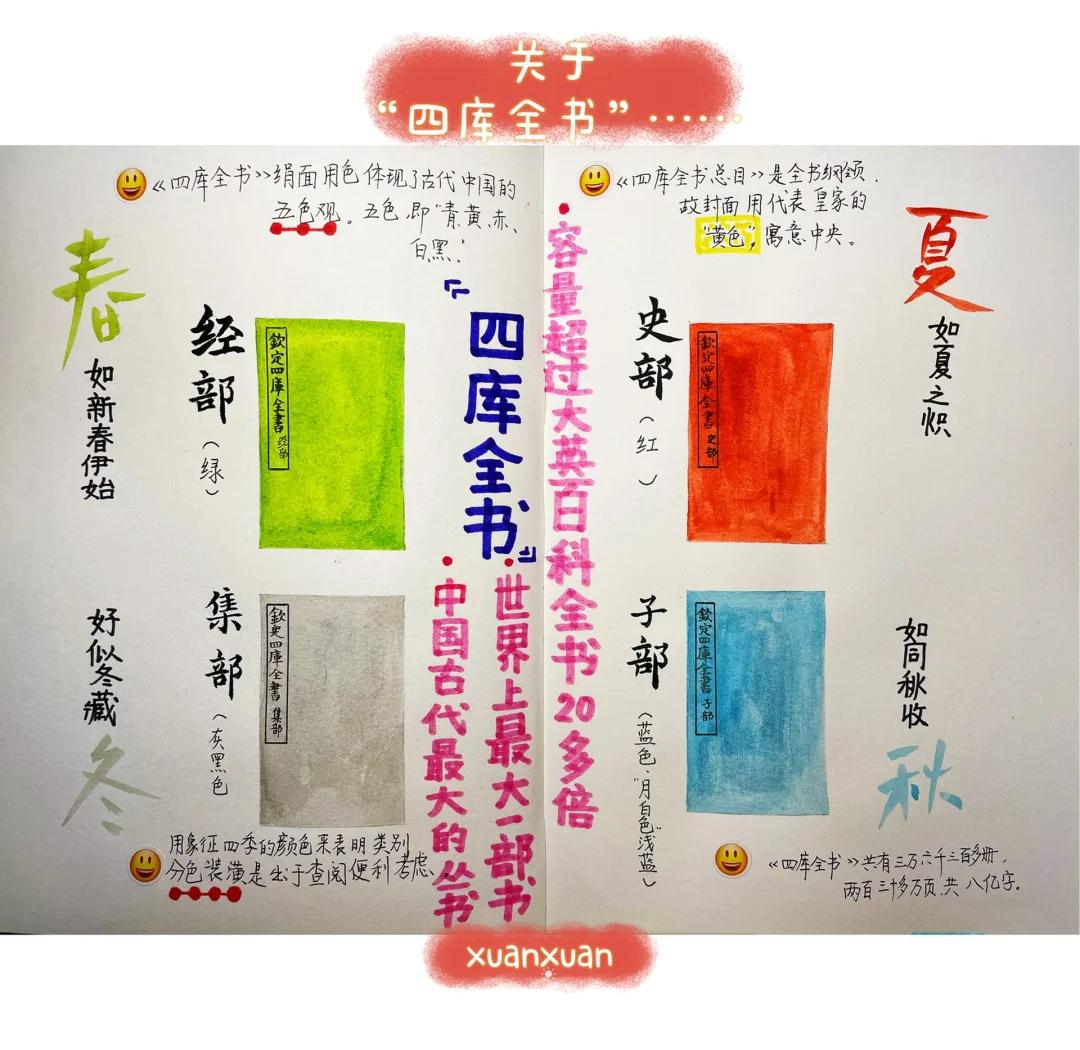 关于
“四库全书”······
《四库全书》绢面用色体现了古代中国的
五色观。五色,即“青、黄、赤、
白、黑”。
春
如新春伊始
经部
(绿)
欽定四庫全書 經部
『四库全书』
《四库全书总目》是全书纲领,
故封面用代表皇家的
“黄色”,寓意中央。
夏
如夏之炽
史部
(红)
欽定四庫全書 史部
·容量超过大英百科全书20多倍
·世界上最大一部书
·中国古代最大的丛书
集部
(灰黑色
欽定四庫全書 集部
好似冬藏
冬
用象征四季的颜色来表明类别
分色装潢是出于查阅便利考虑。
子部
(蓝色,“月白色”浅蓝)
欽定四庫全書 子部
如同秋收
秋
《四库全书》共有三万六千三百多册,
两百三十多万页,共八亿字。
xuanxuan